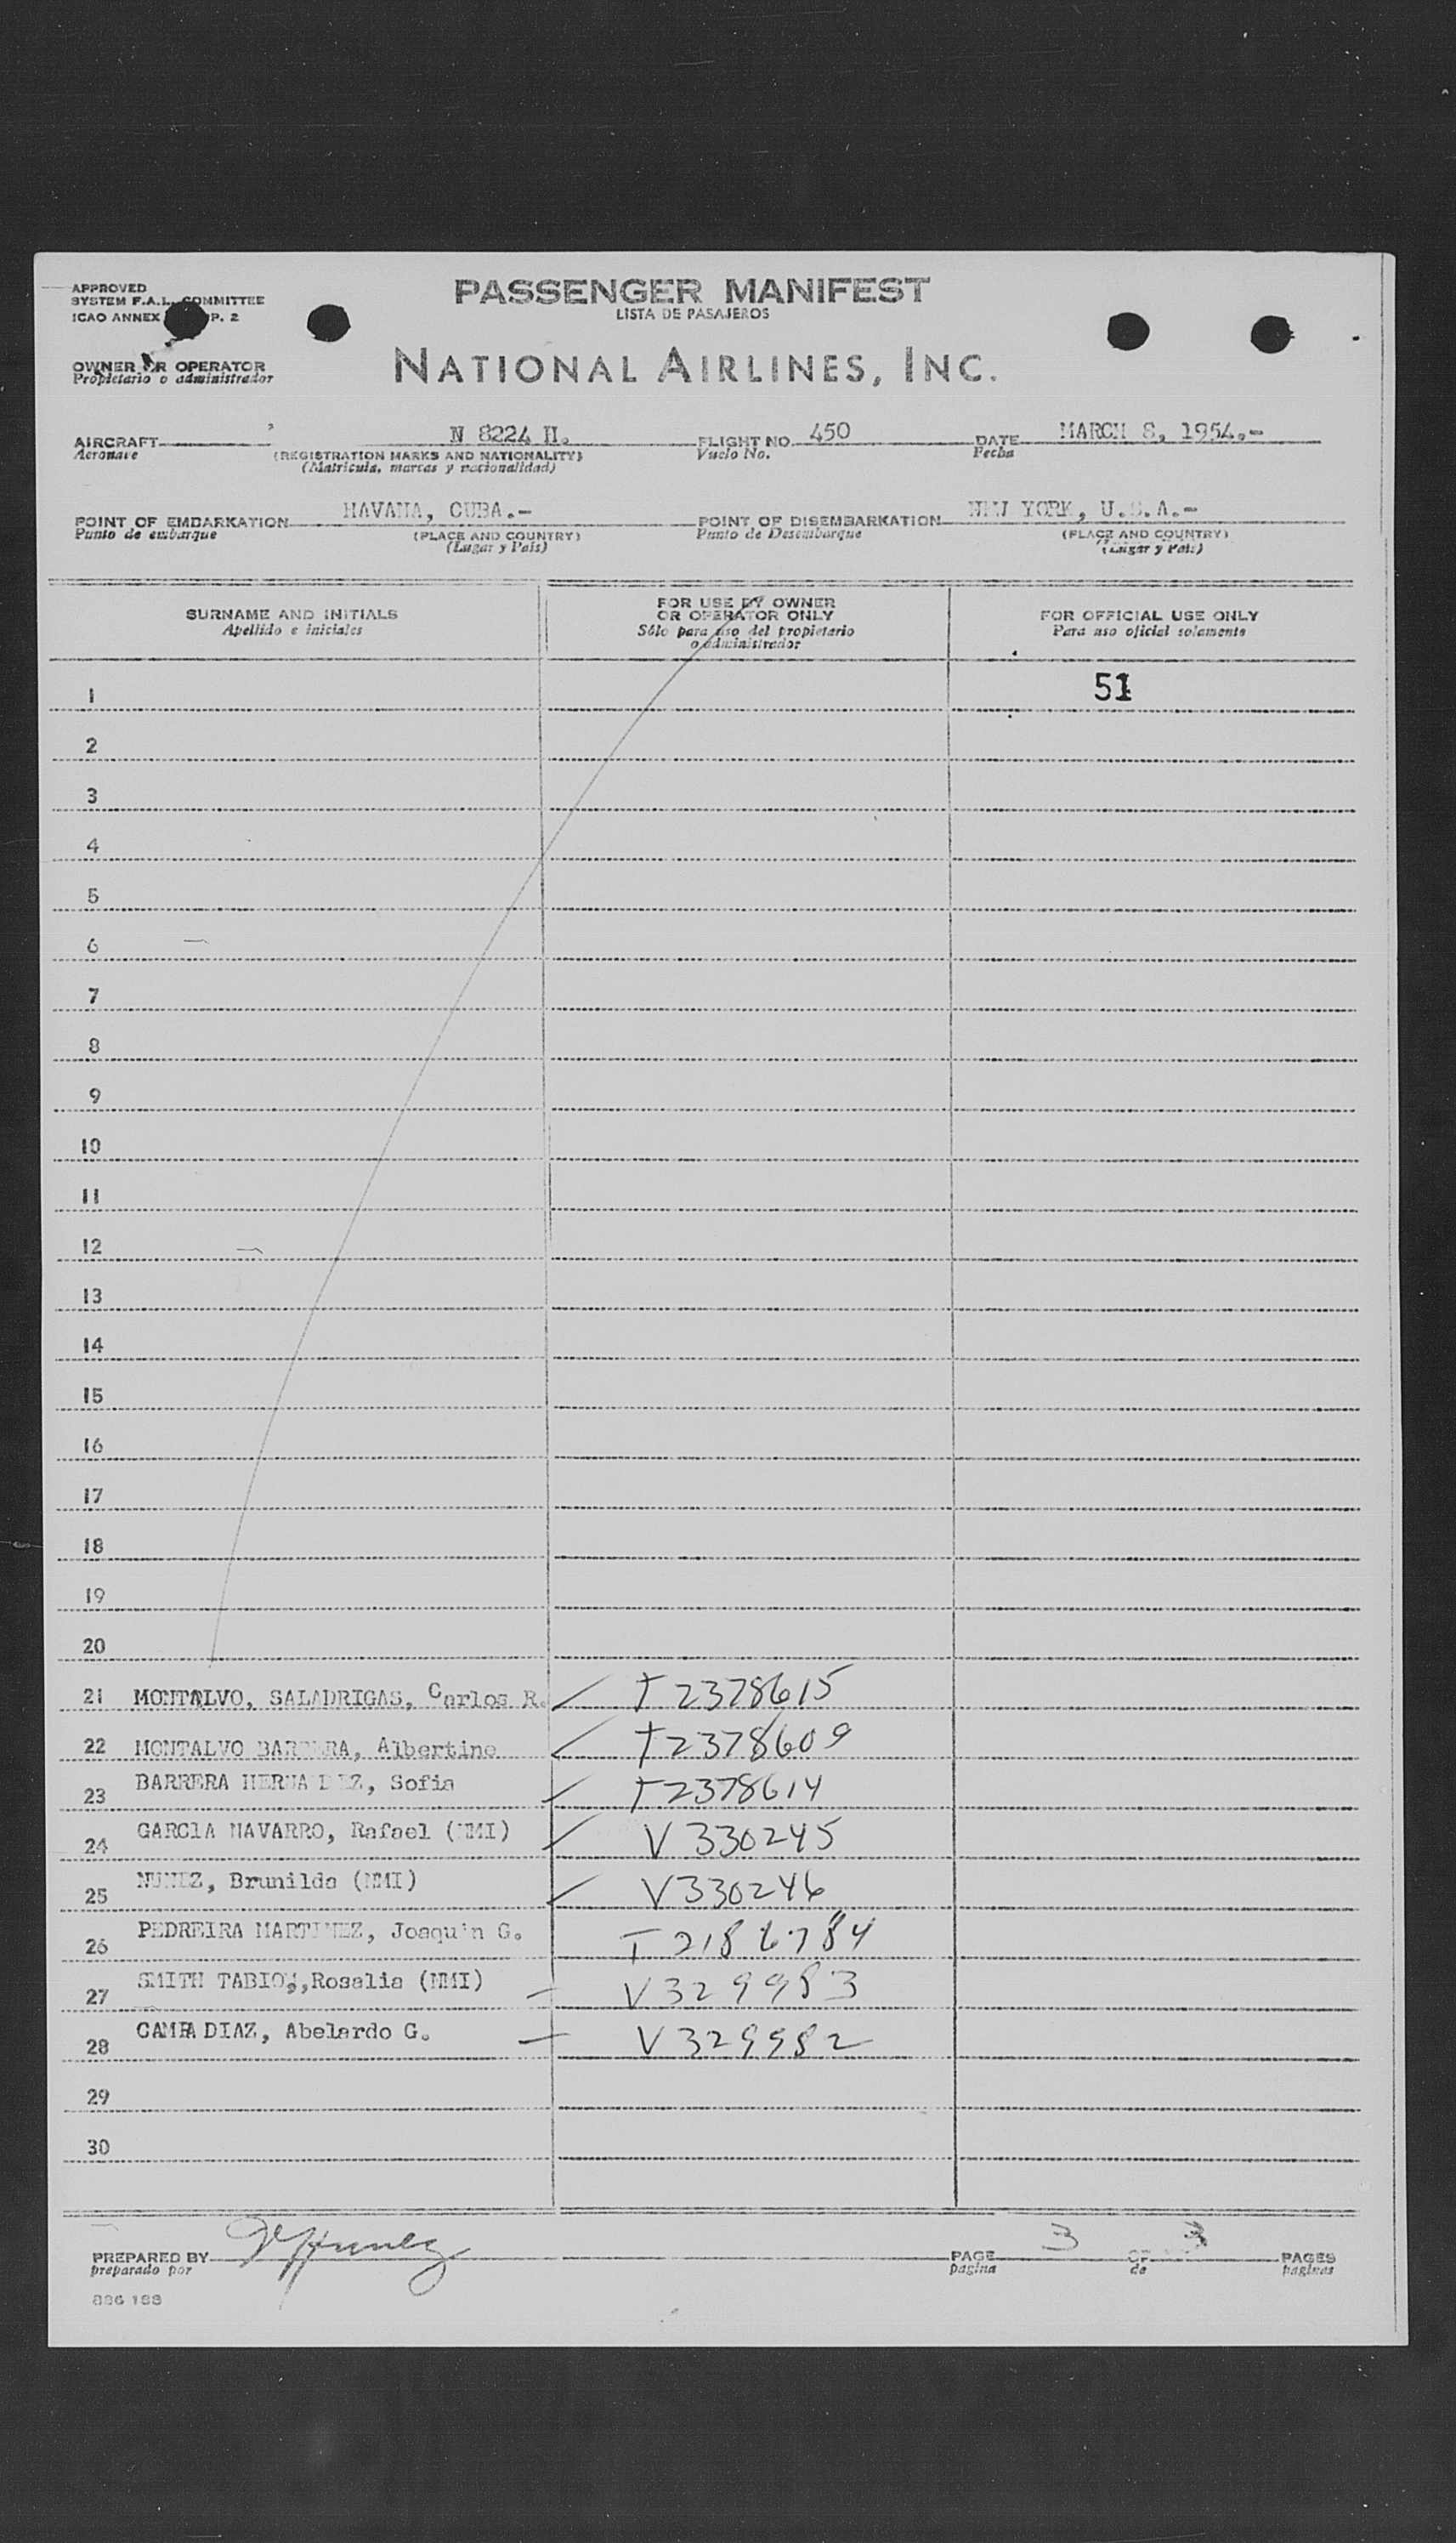 APPROVED
SYSTEM F.A.L. COMMITTEE
ICAO ANNEX P. 2
PASSENGER MANIFEST
LISTA DE PASAJEROS
OWNER OR OPERATOR
Propietario o administrador
NATIONAL AIRLINES, INC.
AIRCRAFT N 8224 H.
Aeronave
(REGISTRATION MARKS AND NATIONALITY)
(Matricula, marcas y nacionalidad)
FLIGHT NO. 450
Vuelo No.
DATE MARCH 8, 1954.-
Fecha
POINT OF EMBARKATION HAVANA, CUBA.-
Punto de embarque
(PLACE AND COUNTRY)
(Lugar y País)
POINT OF DISEMBARKATION NEW YORK, U.S.A.-
Punto de Desembarque
(PLACE AND COUNTRY)
(Lugar y País)
SURNAME AND INITIALS
Apellido e iniciales
FOR USE BY OWNER
OR OPERATOR ONLY
Sólo para uso del propietario
o administrador
FOR OFFICIAL USE ONLY
Para uso oficial solamente
1 51
2
3
4
5
6
7
8
9
10
11
12
13
14
15
16
17
18
19
20
21 MONTALVO, SALADRIGAS, Carlos R. T2378615
22 MONTALVO BARRERA, Albertino T2378609
23 BARRERA HERNANDEZ, Sofia T2378614
24 GARCIA NAVARRO, Rafael (NMI) V330245
25 NUNEZ, Brunilda (NMI) V330246
26 PEDREIRA MARTINEZ, Joaquin G. T2186784
27 SMITH TABIO, Rosalia (NMI) V329983
28 CAMPA DIAZ, Abelardo G. V329982
29
30
PREPARED BY
preparado por
PAGE 3 OF 3 PAGES
pagina de paginas